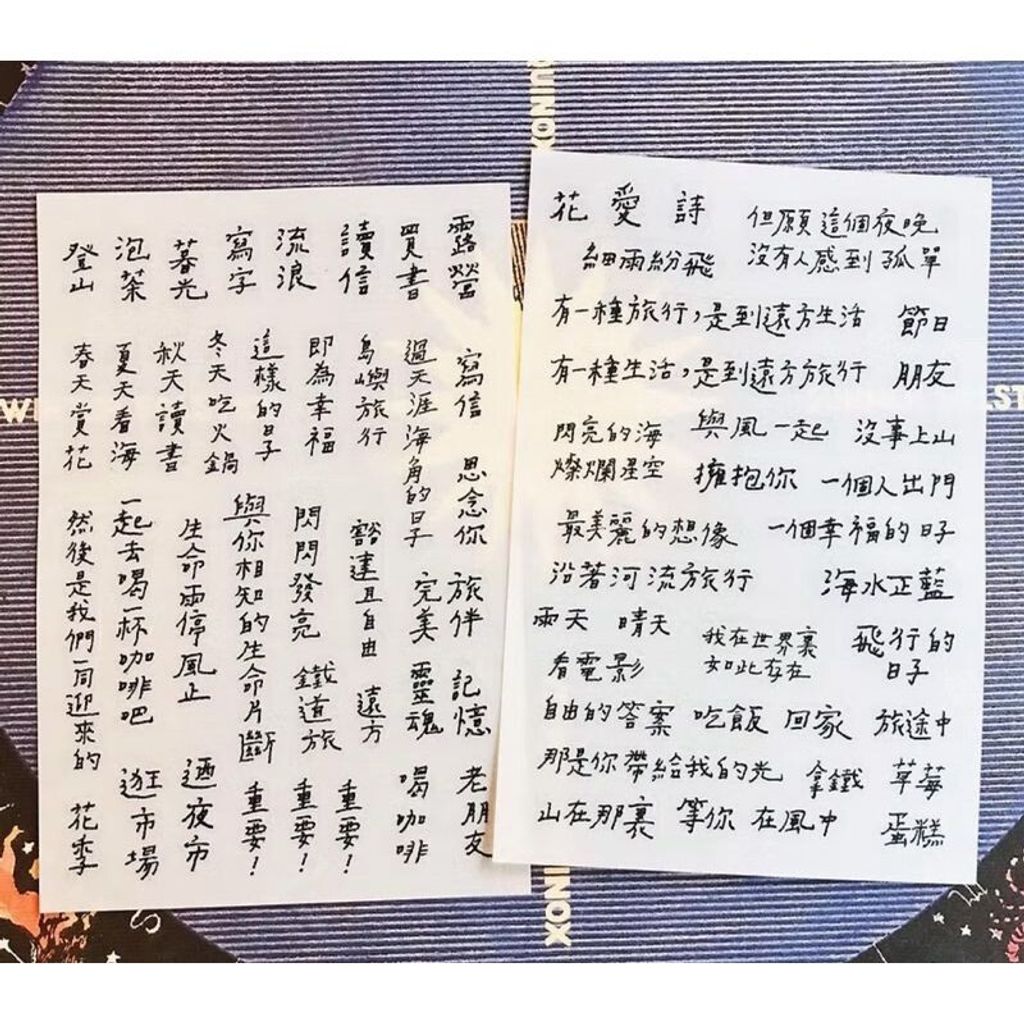 露營 寫信 思念你 旅伴 記憶 老朋友
買書 過天涯海角的日子 完美 靈魂 喝咖啡
讀信 島嶼旅行 豁達且自由 遠方 重要!
流浪 即為幸福 閃閃發亮 鐵道旅 重要!
寫字 這樣的日子 與你相知的生命片斷 重要!
冬天吃火鍋
暮光 秋天讀書 生命雨停風止 迺夜市
泡茶 夏天看海 一起去喝一杯咖啡吧 逛市場
登山 春天賞花 然後是我們一同迎來的 花季
花愛詩
但願這個夜晚
沒有人感到孤單
細雨紛飛
有一種旅行,是到遠方生活 節日
有一種生活,是到遠方旅行 朋友
閃亮的海 與風一起 沒事上山
燦爛星空 擁抱你 一個人出門
最美麗的想像 一個幸福的日子
沿著河流旅行 海水正藍
雨天 晴天
看電影
我在世界裏
如此存在
飛行的
日子
自由的答案 吃飯 回家 旅途中
那是你帶給我的光 拿鐵 草莓
山在那裏 等你 在風中 蛋糕